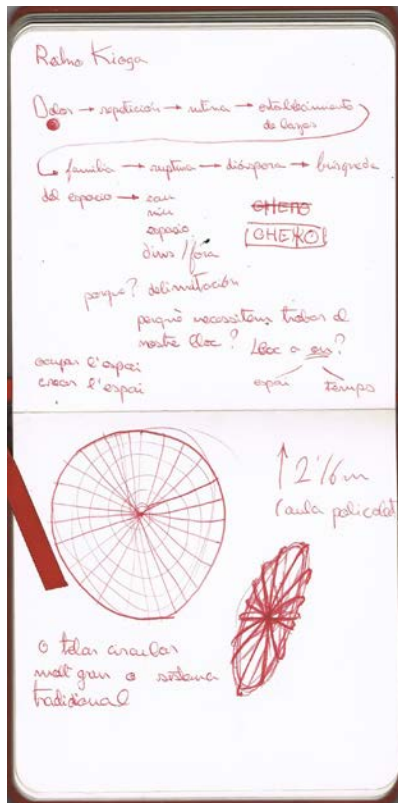 Kioga
Dolor → repetición → rutina → establecimiento
de lazos
familia → ruptura → diáspora → búsqueda
del espacio → cau
niu
espacio
dins / fora
porqué? delimitación
perquè necessitem trobar el
nostre lloc? Lloc a on?
ocupar l'espai
espai temps
crear l'espai
(aula
O telar circular
molt gran o sistema
tradicional